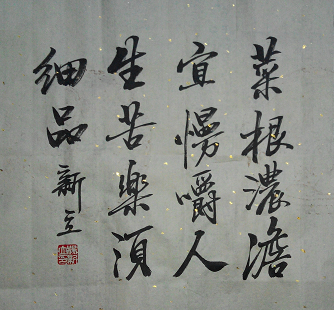 菜根濃澹
宜慢嚼人
生苦樂須
細品 新立